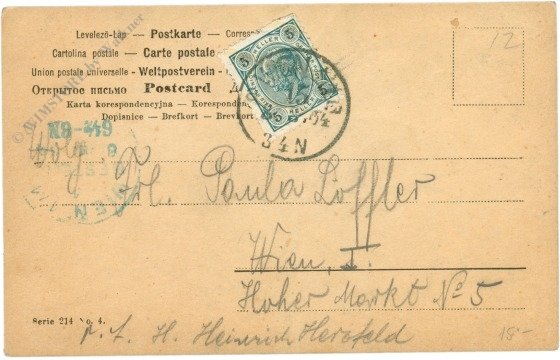 Levelező-Lap — Postkarte — Corresp
Cartolina postale — Carte postale
Union postale universelle — Weltpostverein — C
Открытое письмо Postcard
Karta korespondencyjna — Koresponden
Dopisnice — Brefkort — Brevkort
12
5 HELLER 5
04
34N
N9-349
Wolg. Frl. Paula Löffler
Wien, I.
Hoher Markt No 5
Serie 214 No. 4.
p. A. H. Heinrich Herzfeld
15.-